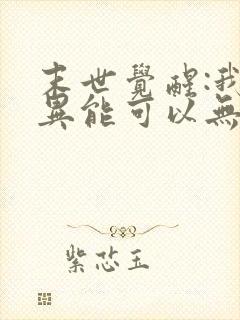 末世覺醒:我
異能可以無
紫芯玉